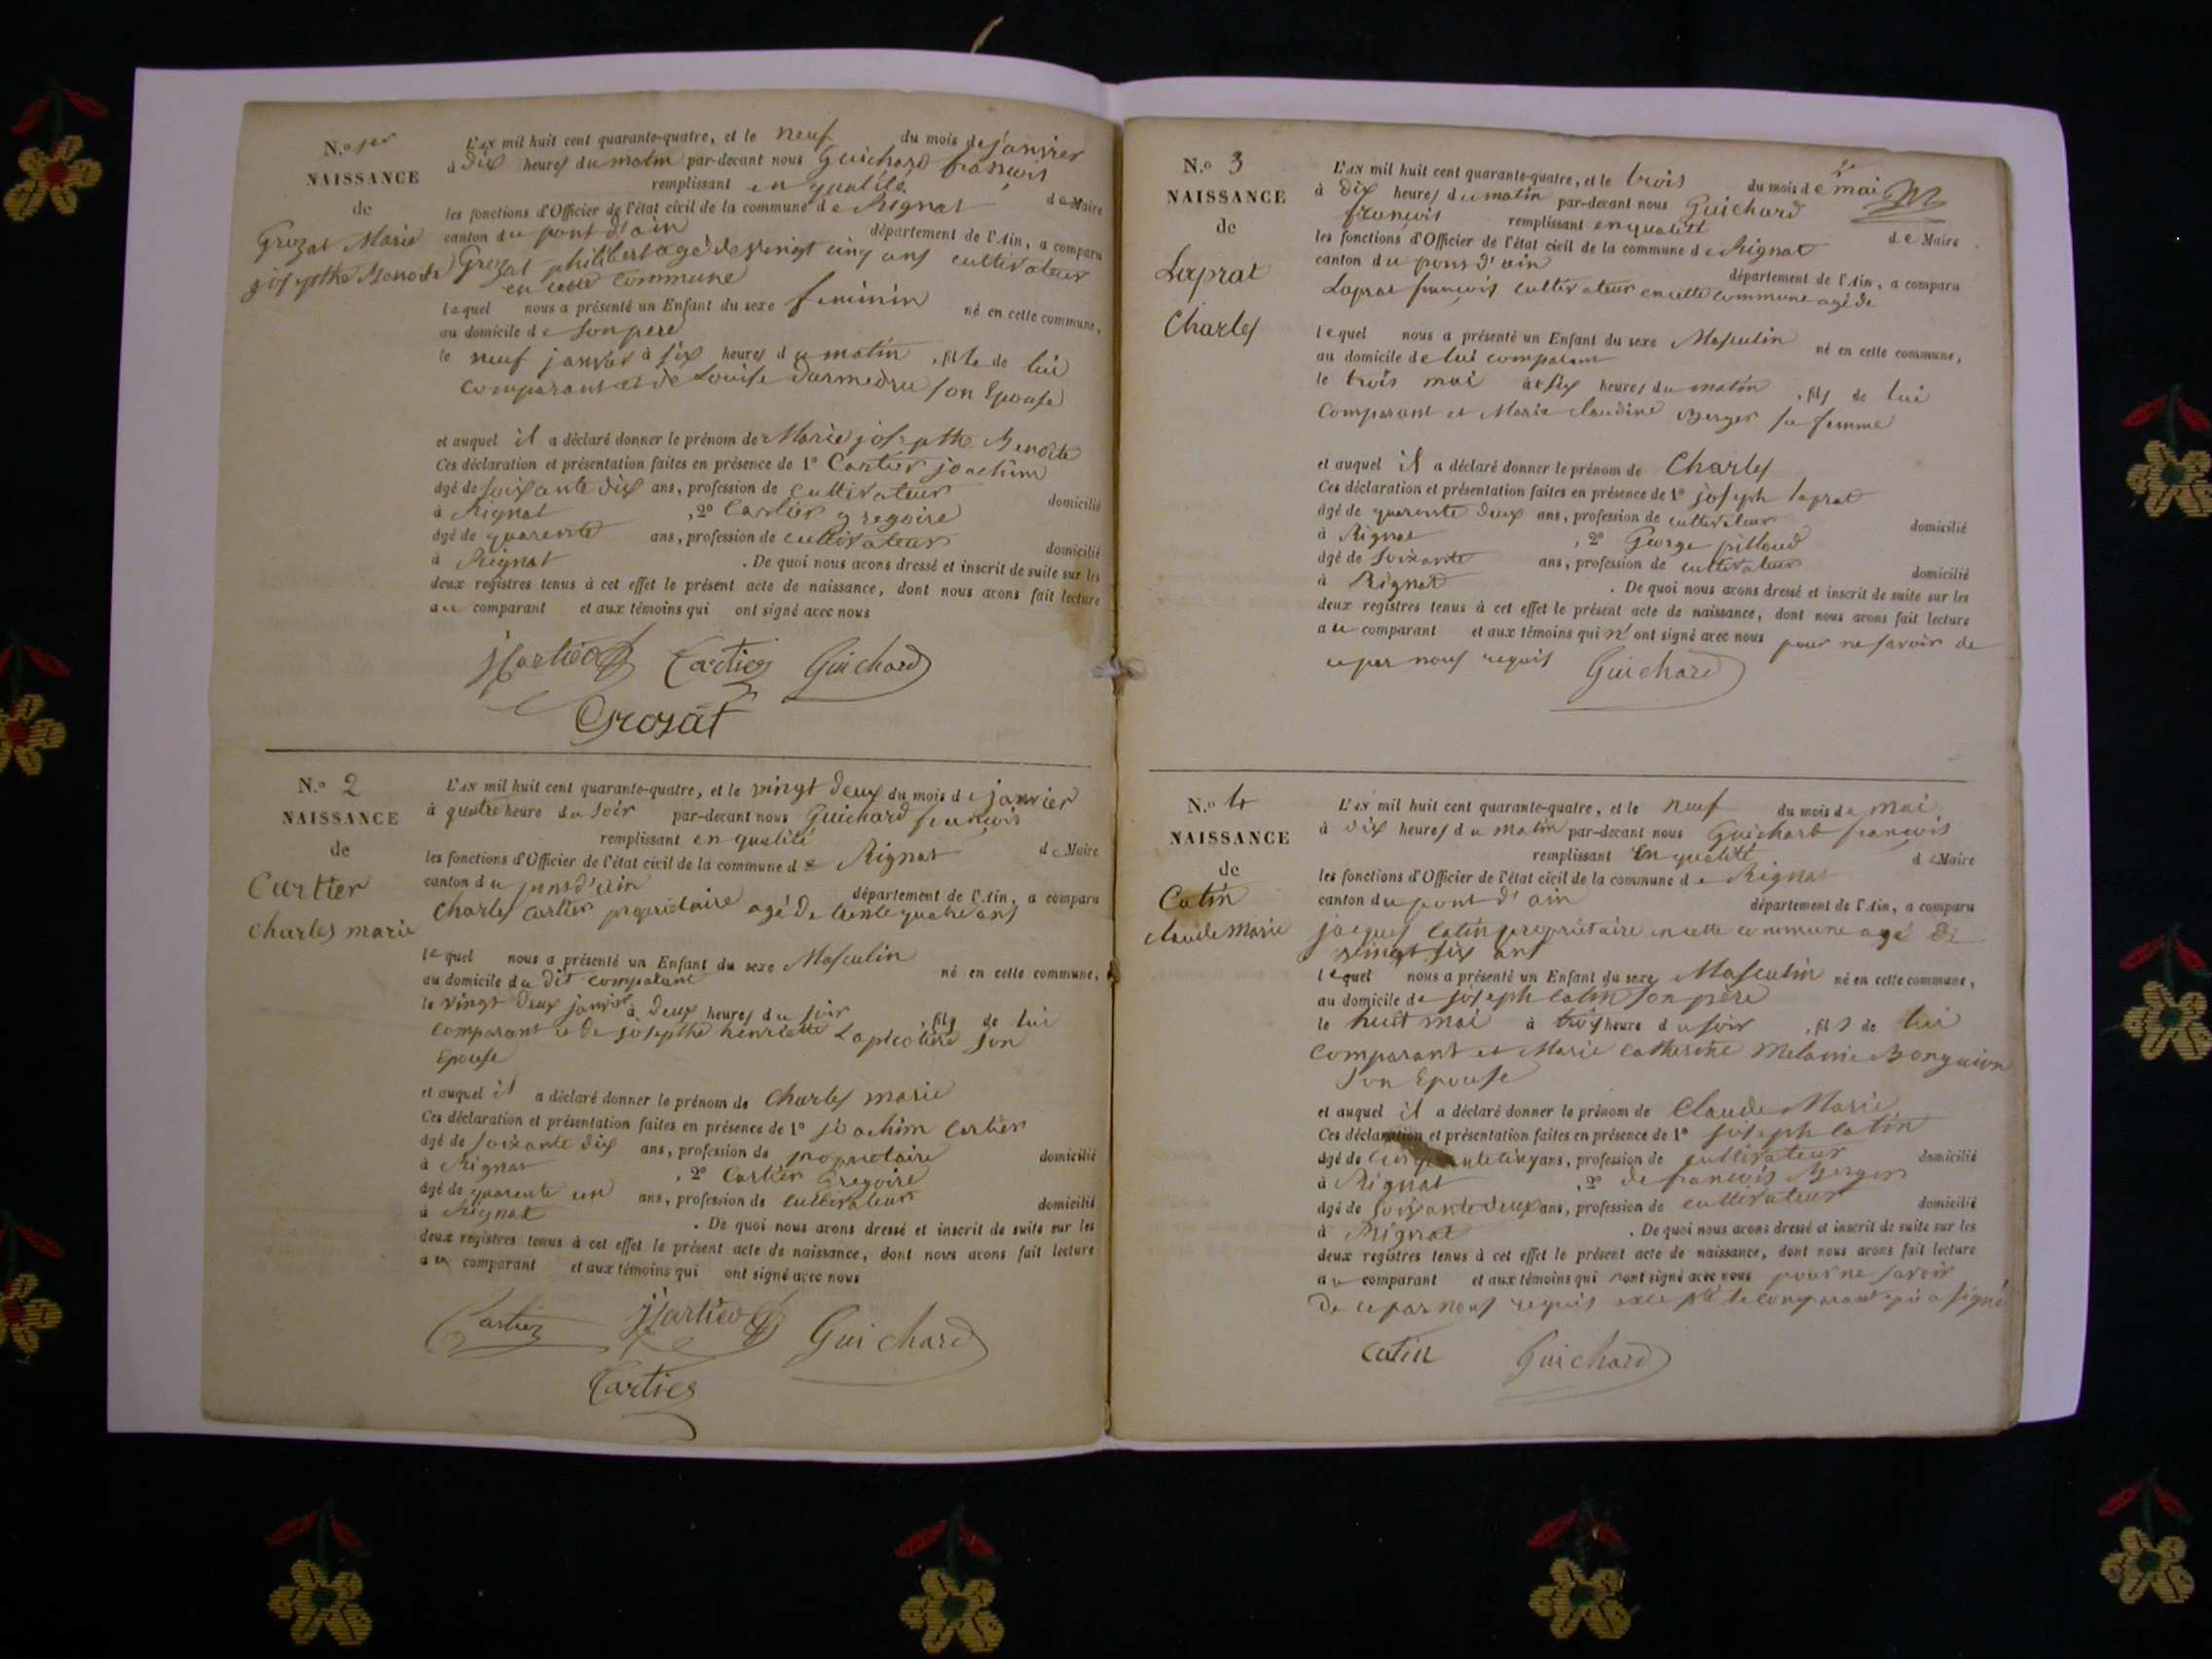 N.o 1er
NAISSANCE
de
Grozat Marie
josephte Benoite
L'an mil huit cent quarante-quatre, et le neuf du mois de janvier
à dix heures du matin par-devant nous Guichard françois
remplissant en qualité de Maire
les fonctions d'Officier de l'état civil de la commune de Rignat
canton du pont d'ain département de l'Ain, a comparu
Grozat philibert agé de vingt cinq ans cultivateur
en cette commune
lequel nous a présenté un Enfant du sexe feminin né en cette commune,
au domicile de son pere
le neuf janvier à six heures du matin, fille de lui
comparant et de Louise Darmedru son Epouse
et auquel il a déclaré donner le prénom de Marie josephte Benoite
Ces déclaration et présentation faites en présence de 1º Cartier joachim
âgé de soixante dix ans, profession de cultivateur domicilié
à Rignat, 2º Cartier gregoire
âgé de quarente ans, profession de cultivateur domicilié
à Rignat. De quoi nous avons dressé et inscrit de suite sur les
deux registres tenus à cet effet le présent acte de naissance, dont nous avons fait lecture
au comparant et aux témoins qui ont signé avec nous
jCartier Cartier Guichard
Grozat
N.o 2
NAISSANCE
de
Cartier
Charles marie
L'an mil huit cent quarante-quatre, et le vingt deux du mois de janvier
à quatre heure du soir par-devant nous Guichard françois
remplissant en qualité de Maire
les fonctions d'Officier de l'état civil de la commune de Rignat
canton du pont d'ain département de l'Ain, a comparu
Charles Cartier propriétaire agé de trente quatre ans
lequel nous a présenté un Enfant du sexe Masculin né en cette commune,
au domicile du dit comparant
le vingt deux janvier à deux heures du soir, fils de lui
comparant et de josephte henriette son
Epouse
et auquel il a déclaré donner le prénom de Charles marie
Ces déclaration et présentation faites en présence de 1º joachim Cartier
âgé de soixante dix ans, profession de propriétaire domicilié
à Rignat, 2º Cartier Gregoire
âgé de quarente un ans, profession de cultivateur domicilié
à Rignat. De quoi nous avons dressé et inscrit de suite sur les
deux registres tenus à cet effet le présent acte de naissance, dont nous avons fait lecture
au comparant et aux témoins qui ont signé avec nous
Cartier jCartier Guichard
Cartier
N.o 3
NAISSANCE
de
Laprat
Charles
L'an mil huit cent quarante-quatre, et le trois du mois de mai
à dix heures du matin par-devant nous Guichard
françois remplissant en qualité de Maire
les fonctions d'Officier de l'état civil de la commune de Rignat
canton du pont d'ain département de l'Ain, a comparu
Laprat françois cultivateur en cette commune agé de
lequel nous a présenté un Enfant du sexe Masculin né en cette commune,
au domicile de lui comparant
le trois mai à six heures du matin, fils de lui
comparant et Marie Claudine Berger sa femme
et auquel il a déclaré donner le prénom de Charles
Ces déclaration et présentation faites en présence de 1º joseph laprat
âgé de quarente deux ans, profession de cultivateur domicilié
à Rignat, 2º George pilloud
âgé de soixante ans, profession de cultivateur domicilié
à Rignat. De quoi nous avons dressé et inscrit de suite sur les
deux registres tenus à cet effet le présent acte de naissance, dont nous avons fait lecture
au comparant et aux témoins qui n'ont signé avec nous pour ne savoir de
ce par nous requis Guichard
N.o 4
NAISSANCE
de
Catin
claude Marie
L'an mil huit cent quarante-quatre, et le neuf du mois de mai
à dix heures du matin par-devant nous Guichart françois
remplissant En qualité de Maire
les fonctions d'Officier de l'état civil de la commune de Rignat
canton du pont d'ain département de l'Ain, a comparu
jacques Catin propriétaire en cette commune agé de
vingt six ans
lequel nous a présenté un Enfant du sexe Masculin né en cette commune,
au domicile de joseph Catin son père
le huit mai à trois heure du soir, fils de lui
comparant et Marie Catherine Melanie
son Epouse
et auquel il a déclaré donner le prénom de Claude Marie
Ces déclaration et présentation faites en présence de 1º joseph Catin
âgé de cinquante cinq ans, profession de cultivateur domicilié
à Rignat, 2º de francois Berger
âgé de soixante deux ans, profession de cultivateur domicilié
à Rignat. De quoi nous avons dressé et inscrit de suite sur les
deux registres tenus à cet effet le présent acte de naissance, dont nous avons fait lecture
au comparant et aux témoins qui n'ont signé avec nous pour ne savoir
de ce par nous requis excepté le comparant qui a signé
Catin Guichard